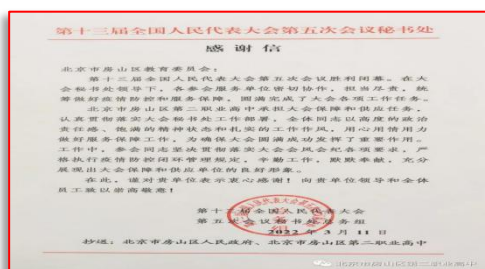 第十三届全国人民代表大会第五次会议秘书处
感谢信
北京市房山区教育委员会：
第十三届全国人民代表大会第五次会议胜利闭幕。在大
会秘书处领导下，各参会服务单位密切协作，担当尽责，统
筹做好疫情防控和服务保障，圆满完成了大会各项工作任务。
北京市房山区第二职业高中承担大会保障和供应任务，
认真贯彻落实大会秘书处工作部署，全体同志以高度的政治
责任感、饱满的精神状态和扎实的工作作风，用心用情用力
做好服务保障工作，为确保大会圆满成功发挥了重要作用。
工作中，参会同志坚决贯彻落实大会会风会纪各项要求，严
格执行疫情防控闭环管理规定，辛勤工作，默默奉献，充分
展现出大会保障和供应单位的良好形象。
在此，谨对贵单位表示衷心感谢！向贵单位领导和全体
员工致以崇高敬意！
第十三届全国人民代表大会
第五次会议秘书处总务组
2022年3月11日
抄送：北京市房山区人民政府、北京市房山区第二职业高中
北京市房山区第二职业高中